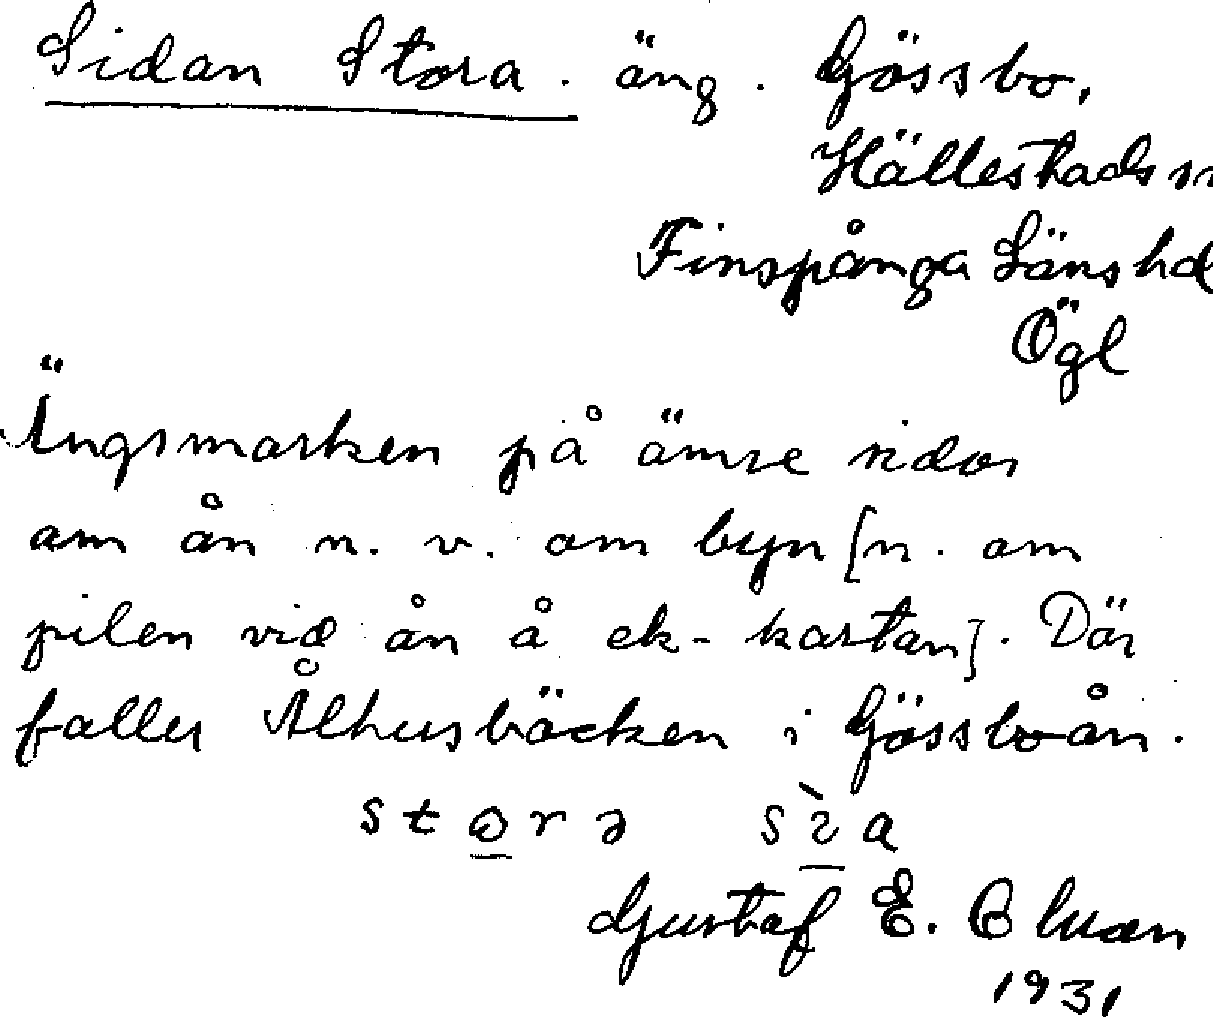 Sidan Stora. äng. Gössbo,
Hällestads sn
Finspånga Länshd
Ögl
Ängsmarken på ömse sidor
om ån n. v. om byn [n. om
pilen vid ån å ek-kartan]. Där
faller Ålhusbäcken i Gössboån.
stɷrə sìa
Gustaf E. Bluan
1931